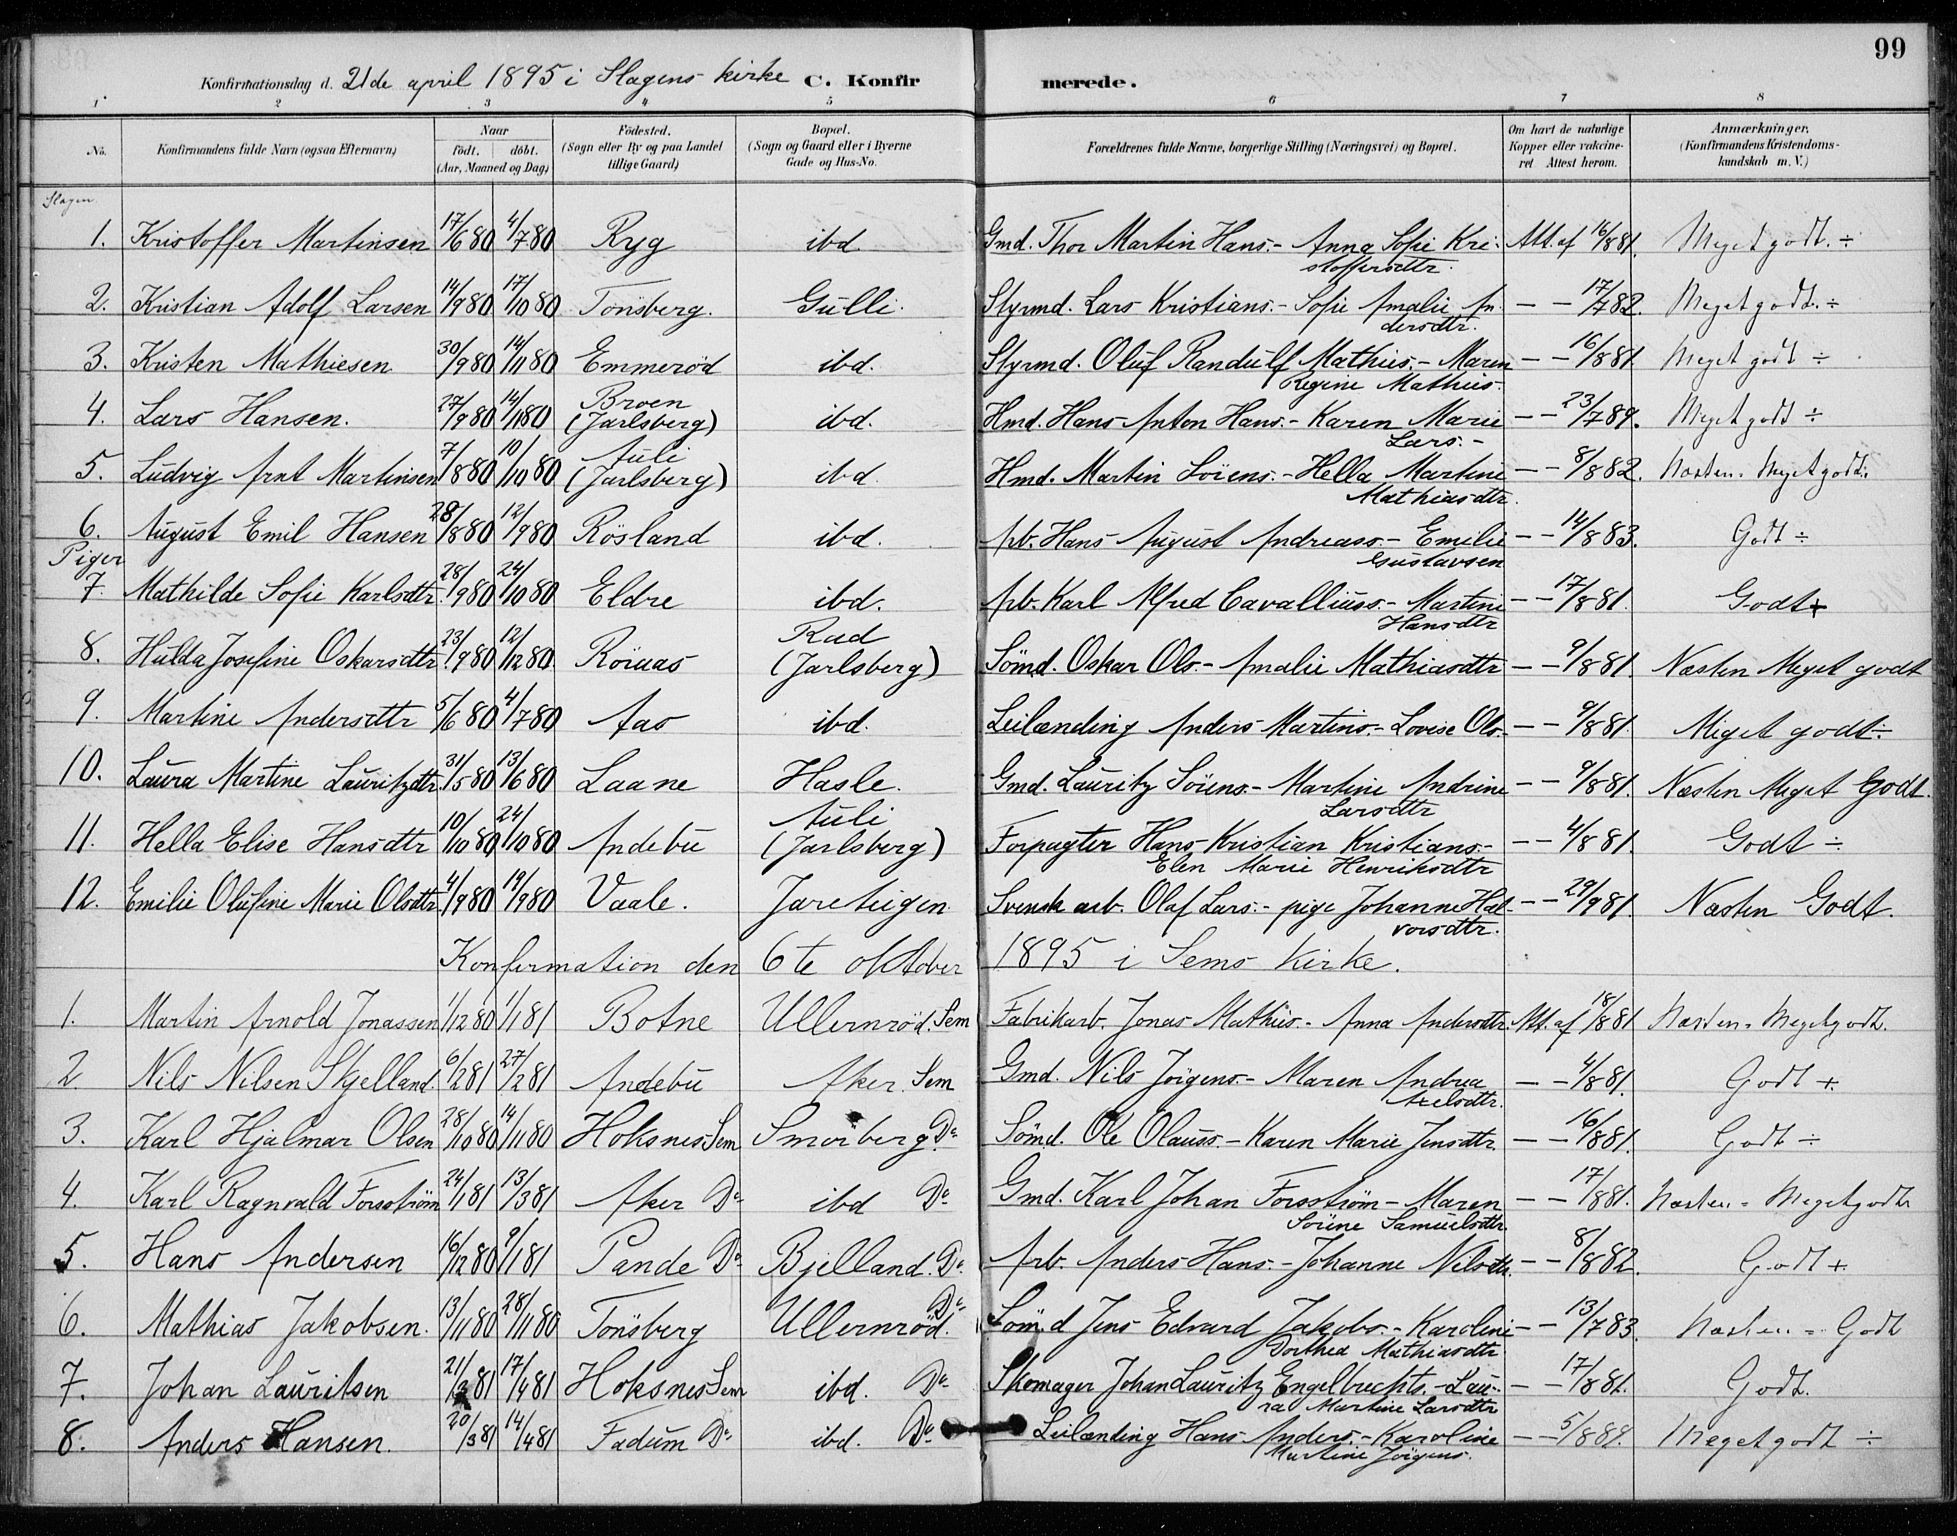 99
Konfirmationsdag d. 21de april 1895 i Slagens kirke C. Konfirmerede.
1 2 3 4 5 6 7 8
No. Konfirmandens fulde Navn (ogsaa Efternavn) Naar født. døbt. (Aar, Maaned og Dag) Födested. (Sogn eller By og paa Landet tillige Gaard) Bopæl. (Sogn og Gaard eller i Byerne Gade og Hus-No. Forældrenes fulde Navne, borgerlige Stilling (Næringsvei) og Bopæl. Om havt de naturlige Kopper eller vakcineret. Attest herom. Anmærkninger. (Konfirmandens Kristendomskundskab m. V.)
Slagen
1. Kristoffer Martinsen 17/6 80 4/7 80 Ryg ibd Gmd. Thor Martin Hans.- Anna Sofie Kristoffersdtr. Att. af 16/8 81. Meget godt. ÷
2. Kristian Adolf Larsen 14/9 80 17/10 80 Tönsberg. Gulli. Styrmd. Lars Kristians.- Sofie Amalie Andersdtr. — — 17/7 82. Meget godt. ÷
3. Kristen Mathiesen 30/9 80 14/11 80 Emmeröd ibd. Styrmd. Oluf Randulf Mathies.- Maren Regine Mathies. — — 16/8 81. Meget godt ÷
4. Lars Hansen. 27/9 80 14/11 80 Broen (Jarlsberg) ibd. Hmd. Hans Anton Hans.- Karen Marie Lars.- — — 23/7 89. Meget godt ÷
5. Ludvig Arnt Martinsen 7/8 80 10/10 80 Auli (Jarlsberg) ibd. Hmd. Martin Söiens.- Hella Martine Mathiasdtr. — — 8/8 82. Næsten Meget godt.
6. August Emil Hansen 28/8 80 12/9 80 Rösland ibd. Arb. Hans August Andreass.- Emilie Gustavsen — — 14/8 83. Godt ÷
Piger
7. Mathilde Sofie Karlsdtr. 28/9 80 24/10 80 Eldre ibd. Arb. Karl Alfred Cavalliuss.- Martine Hansdtr — — 17/8 81. Godt +
8. Hulda Josefine Oskarsdtr 23/9 80 12/12 80 Röiaas Rud (Jarlsberg) Sömd. Oskar Ols.- Amalie Mathiasdtr — — 9/8 81. Næsten Meget godt
9. Martine Andersdtr 5/6 80 4/7 80 Aas ibd. Leilænding Anders Martins.- Lovise Ols. — — 9/8 81. Meget godt ÷
10. Laura Martine Lauritzdtr. 31/5 80 13/6 80 Laane Hasle. Gmd. Lauritz Söiens.- Martine Andrine Larsdtr — — 9/8 81. Næsten Meget Godt.
11. Hella Elise Hansdtr 10/10 80 24/10 80 Andebu Auli (Jarlsberg) Forpagter Hans Kristian Kristians.- Elen Marie Henriksdtr — — 4/8 81. Godt ÷
12. Emilie Olufine Marie Olsdtr 4/9 80 19/9 80 Vaale. Jareteigen Svensk arb. Olaf Lars.- pige Johanne Halvorsdtr. — — 29/9 81. Næsten Godt.
Konfirmation den 6te oktober 1895 i Sems Kirke.
1. Martin Arnold Jonassen 1/12 80 1/1 81 Botne Ullernröd. Sem Fabrikarb. Jonas Mathis.- Anna Andersdtr. Att. af 18/8 81 Næsten Meget godt.
2. Nils Nilsen Skjelland 6/2 81 27/2 81 Andebu Aker Sem Gmd. Nils Jörgens.- Maren Andrea Axelsdtr. — — 4/8 81. Godt +
3. Karl Hjalmar Olsen 28/10 80 14/11 80 Hoksnes Sem Smörberg Do Sömd. Ole Olauss.- Karen Marie Jensdtr. — — 16/8 81. Godt ÷
4. Karl Ragnvald Forsström 24/1 81 13/3 81 Aker Do ibd Do Gmd. Karl Johan Forsström - Maren Sörine Samuelsdtr. — — 17/8 81. Næsten Meget godt
5. Hans Andersen 16/12 80 9/1 81 Pande Do Bjelland. Do Arb. Anders Hans.- Johanne Nilsdtr. — — 8/8 82. Godt +
6. Mathias Jakobsen. 13/11 80 28/11 80 Tönsberg Ullernröd. Do Sömd Jens Edvard Jakobs.- Karoline Dorthea Mathiasdtr. — — 13/7 83. Næsten Godt
7. Johan Lauritsen 21/3 81 17/4 81 Hoksnes Sem ibd. Do Skomager Johan Lauritz Engelbrechts.- Laura Martine Larsdtr — — 17/8 81. Godt.
8. Anders Hansen. 20/3 81 14/4 81 Fadum Do ibd. Do Leilænding Hans Anders.- Karoline Martine Jörgens. — — 5/8 89. Meget godt ÷